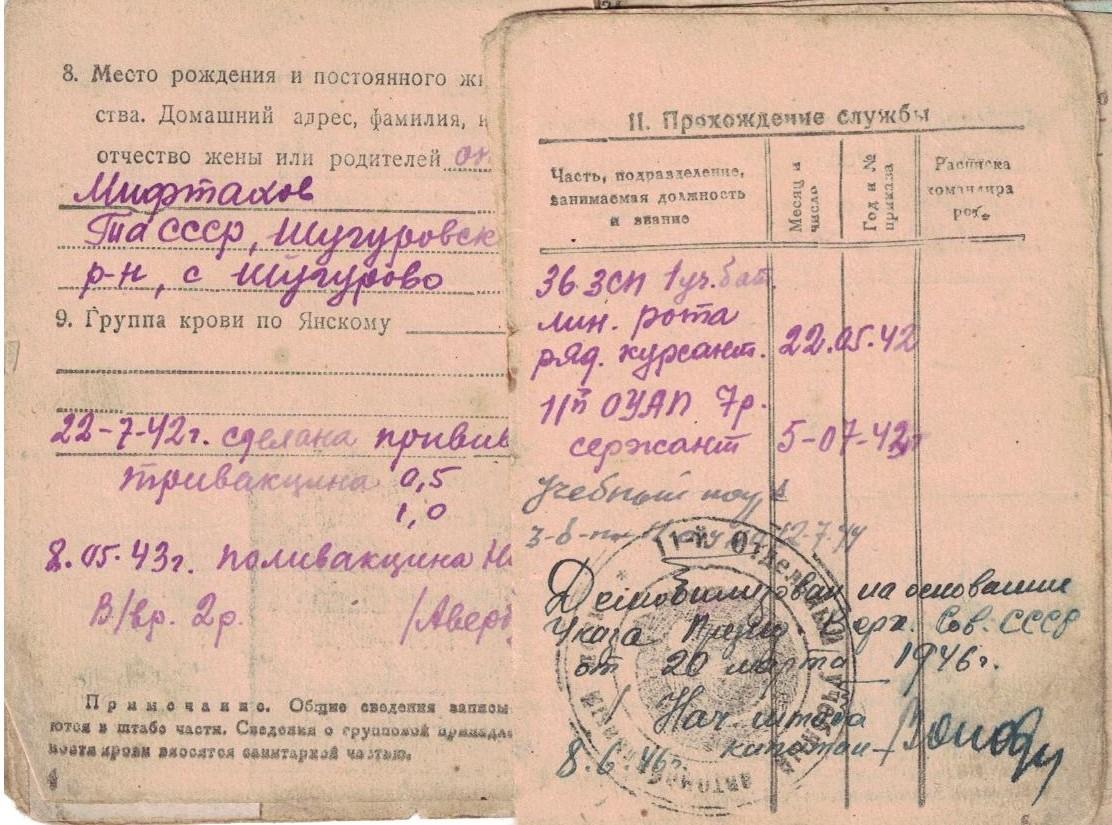 8. Место рождения и постоянного жи
ства. Домашний адрес, фамилия, и
отчество жены или родителей
Мифтахов
ТаССР, Шугуровск
р-н, с Шугурово
9. Группа крови по Янскому
22-7-42г. сделана привив
тривакцина 0,5
1,0
8.05.43г. поливакцина
В/вр. 2р. /Аверб
Примечание. Общие сведения записы
ются в штабе части. Сведения о групповой принадле
ности крови вносятся санитарной частью.
4
II. Прохождение службы
Часть, подразделение,
занимаемая должность
и звание
Месяц и
число
Год и №
приказа
Расписка
командира
роты
36 ЗСП 1 уч. бат.
лин. рота
ряд. курсант. 22.05.42
11й ОУАП 7р.
сержант 5-07-42г
Учебный
12-7-44
Демобилизован на основании
Указа През. Верх. Сов. СССР
от 20 марта 1946г.
/ Нач штаба
капитан /
8.6.46г.
11-й Отдельный учебный